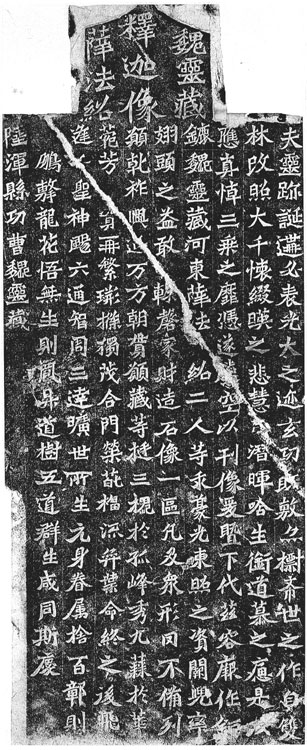 魏靈藏
釋迦像
薛法紹
夫靈跡誕遘必表光大之迹玄功既敷亦標希世之作自雙
林改照大千懷綴暎之悲慧日潛暉唅生銜道慕之痛是以
應真悼三乘之靡憑遂騰空以刊像爰暨下代茲容厥作鉅
鏕魏靈藏河東薛法紹二人等求豪光東照之資闕兜率
翅頭之益敢輒磬家財造石像一區凡及衆形罔不備列
願乾祚興延万方朝貫願藏等挺三槐於孤峰秀九蕀於華
菀芳實再繁條獨茂合門榮葩福流弈葉命終之後飛
逢千聖神颺六通智周三達曠世所生元身眷屬捨百鄣則
鵬擊龍花悟無生則鳳昇道樹五道群生咸同斯慶
陸渾縣功曹魏靈藏